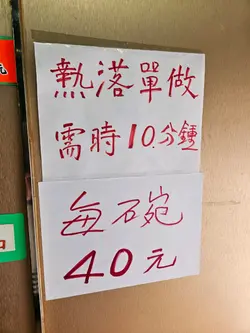 熱落單做
需時10分鍾
每碗
40元